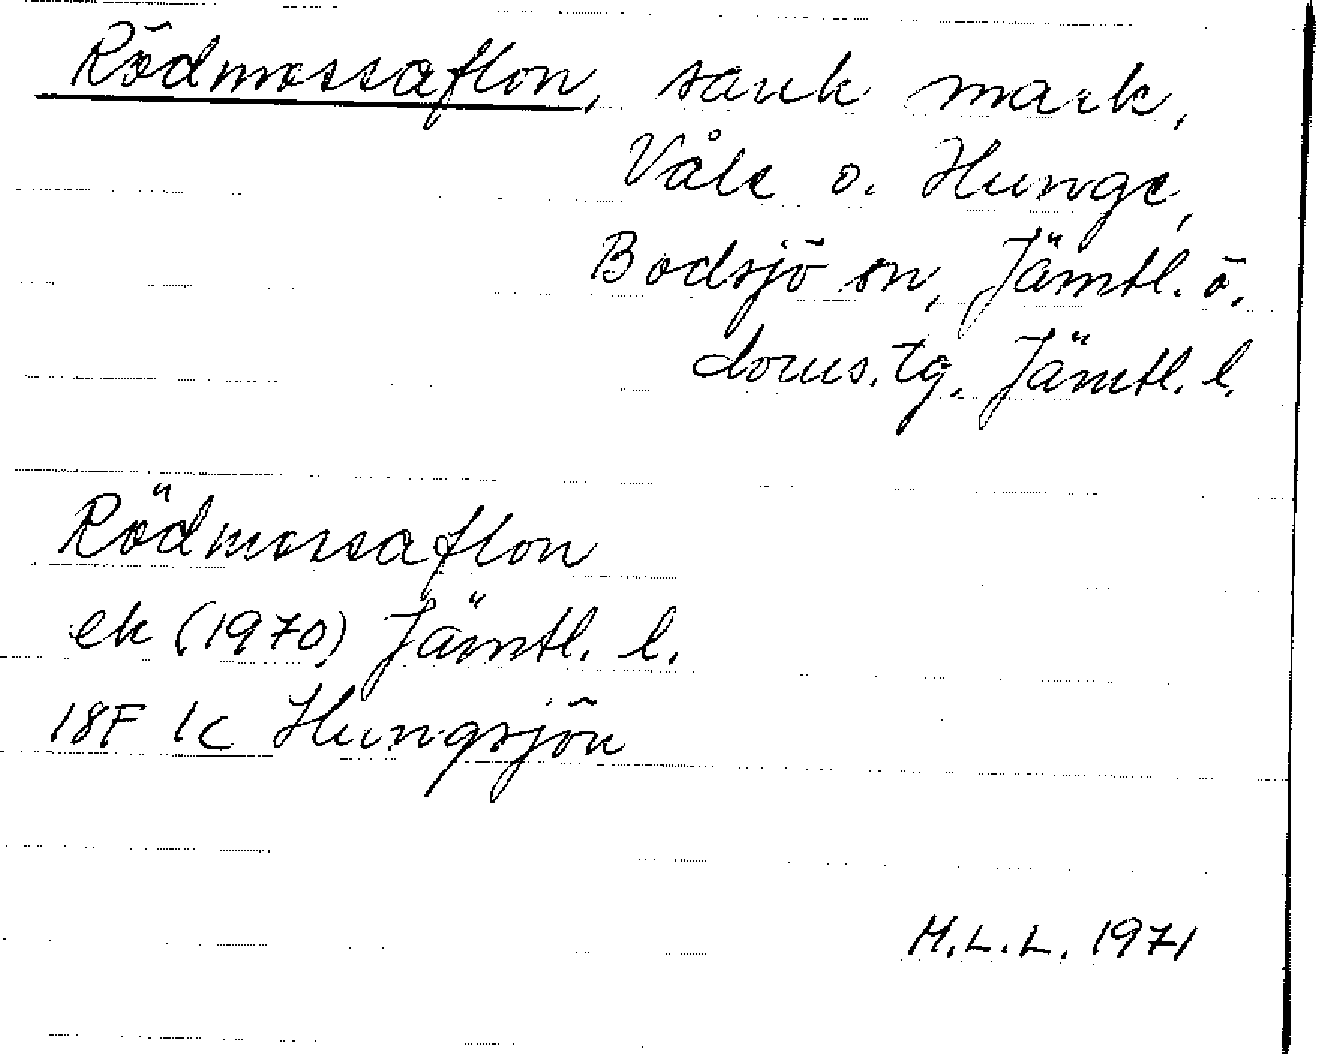 Rödmossaflon, sank mark,
Våle o. Hunge,
Bodsjö sn, Jämtl. ö.
doms. tg. Jämtl. l.
Rödmossaflon
ek (1970) Jämtl. l.
18F 1c Hungsjön
M.L.L. 1971